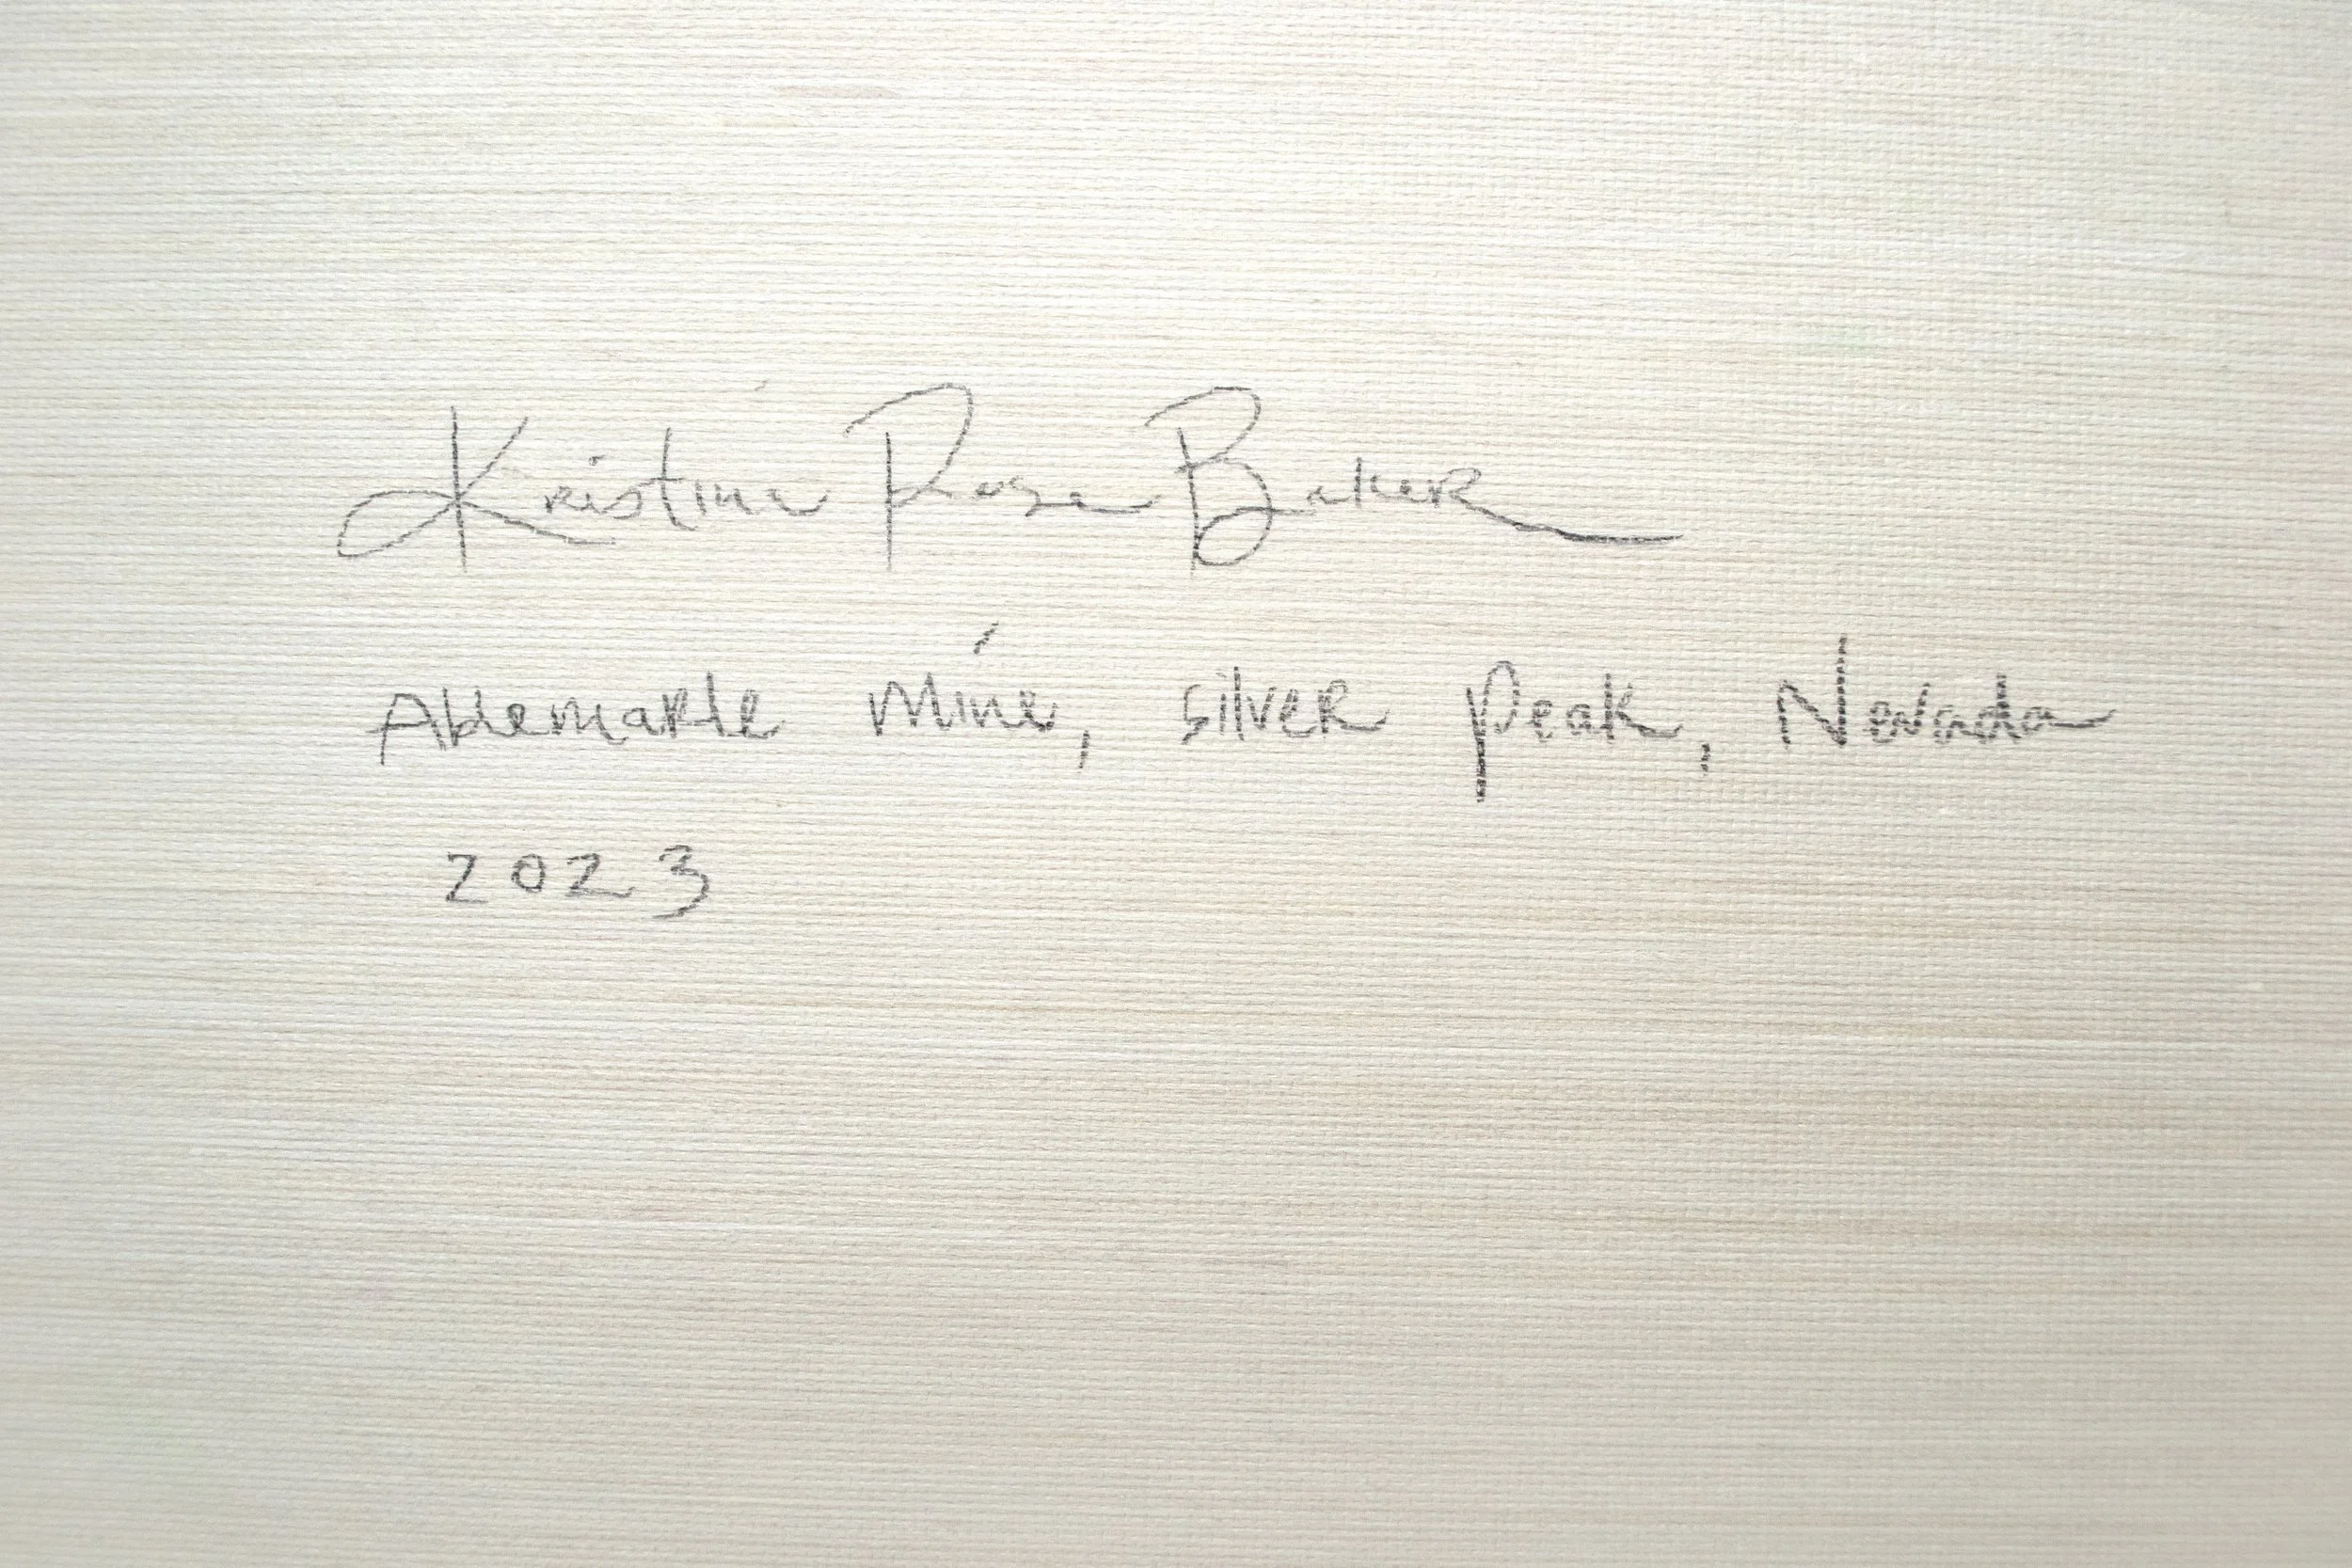 Kristina Rose Baker
Albemarle Mine, silver peak, Nevada
2023